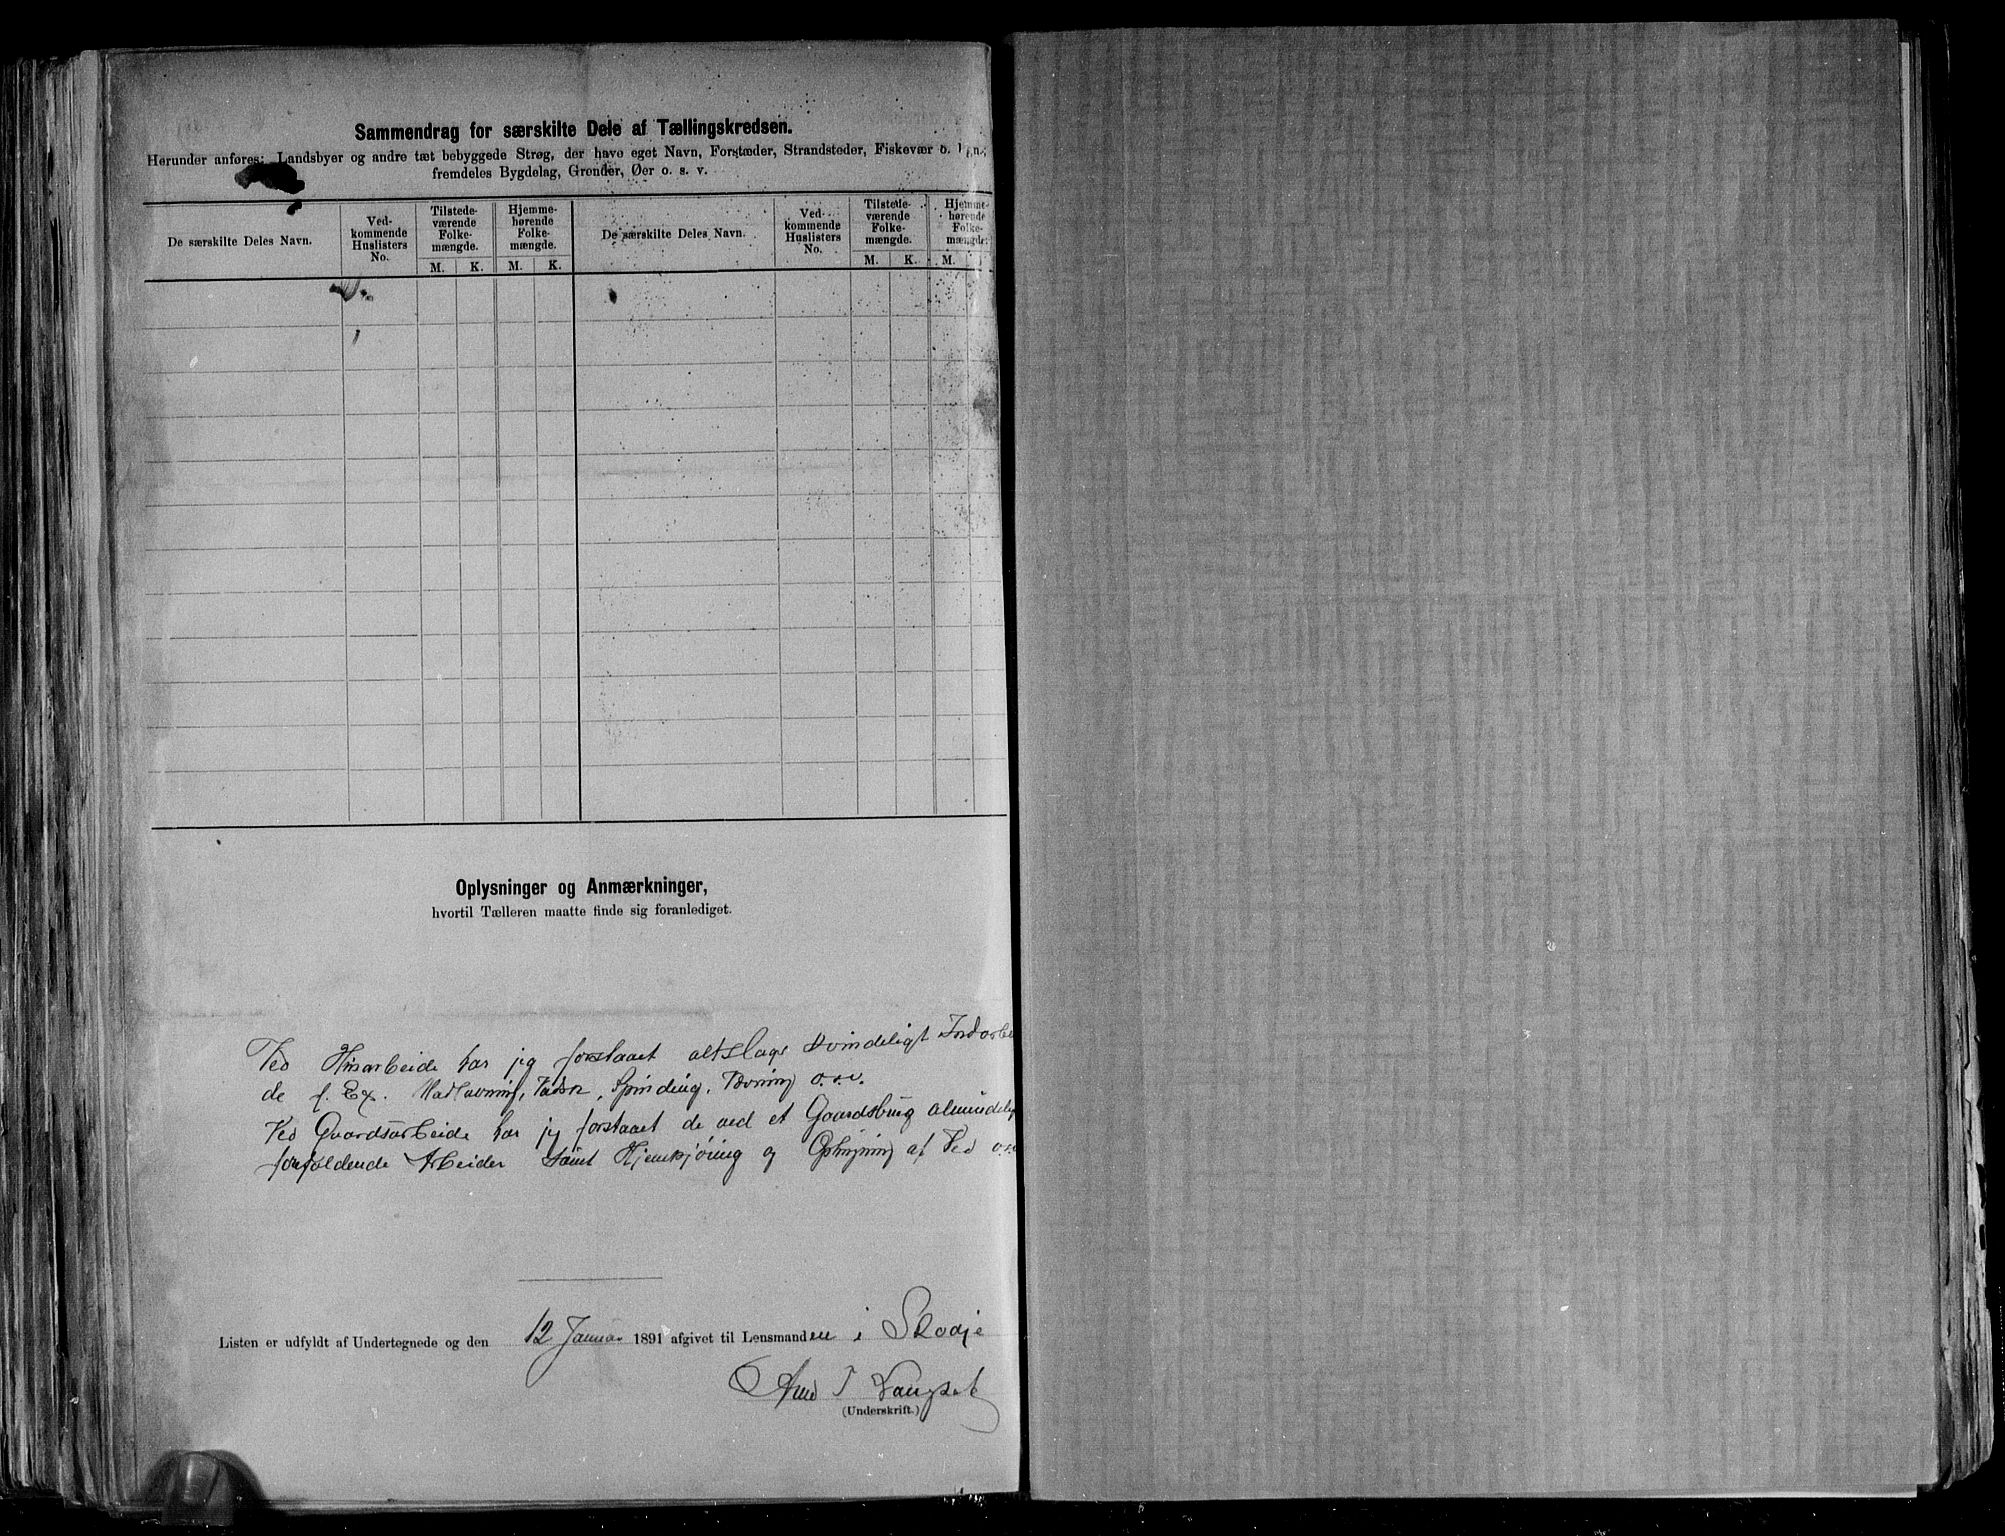 Sammendrag for særskilte Dele af Tællingskredsen.
Herunder anføres: Landsbyer og andre tæt bebyggede Strøg, der have eget Navn, Forstæder, Strandsteder, Fiskevær o. lgn.;
fremdeles Bygdelag, Grender, Øer o. s. v.
De særskilte Deles Navn.
Ved-
kommende
Huslisters
No.
Tilstede-
værende
Folke-
mængde.
Hjemme-
hørende
Folke-
mængde.
M. K. M. K.
De særskilte Deles Navn.
Ved-
kommende
Huslisters
No.
Tilstede-
værende
Folke-
mængde.
Hjemme-
hørende
Folke-
mængde.
M. K. M.
Oplysninger og Anmærkninger,
hvortil Tælleren maatte finde sig foranlediget.
Ved Husarbeide har jeg forstaaet altslags Kvindeligt
de f. Ex. Madlavning, Vadsk, Spinding, Vævning o.s.v.
Ved Gaardsarbeide har jeg forstaaet de ved et Gaardsbrug almindelig
forfaldende Arbeider samt Hjemkjøring og Ophugning af Ved o.s.v
Listen er udfyldt af Undertegnede og den 12 Januar 1891 afgivet til Lensmanden i Skodje
T
(Underskrift.)